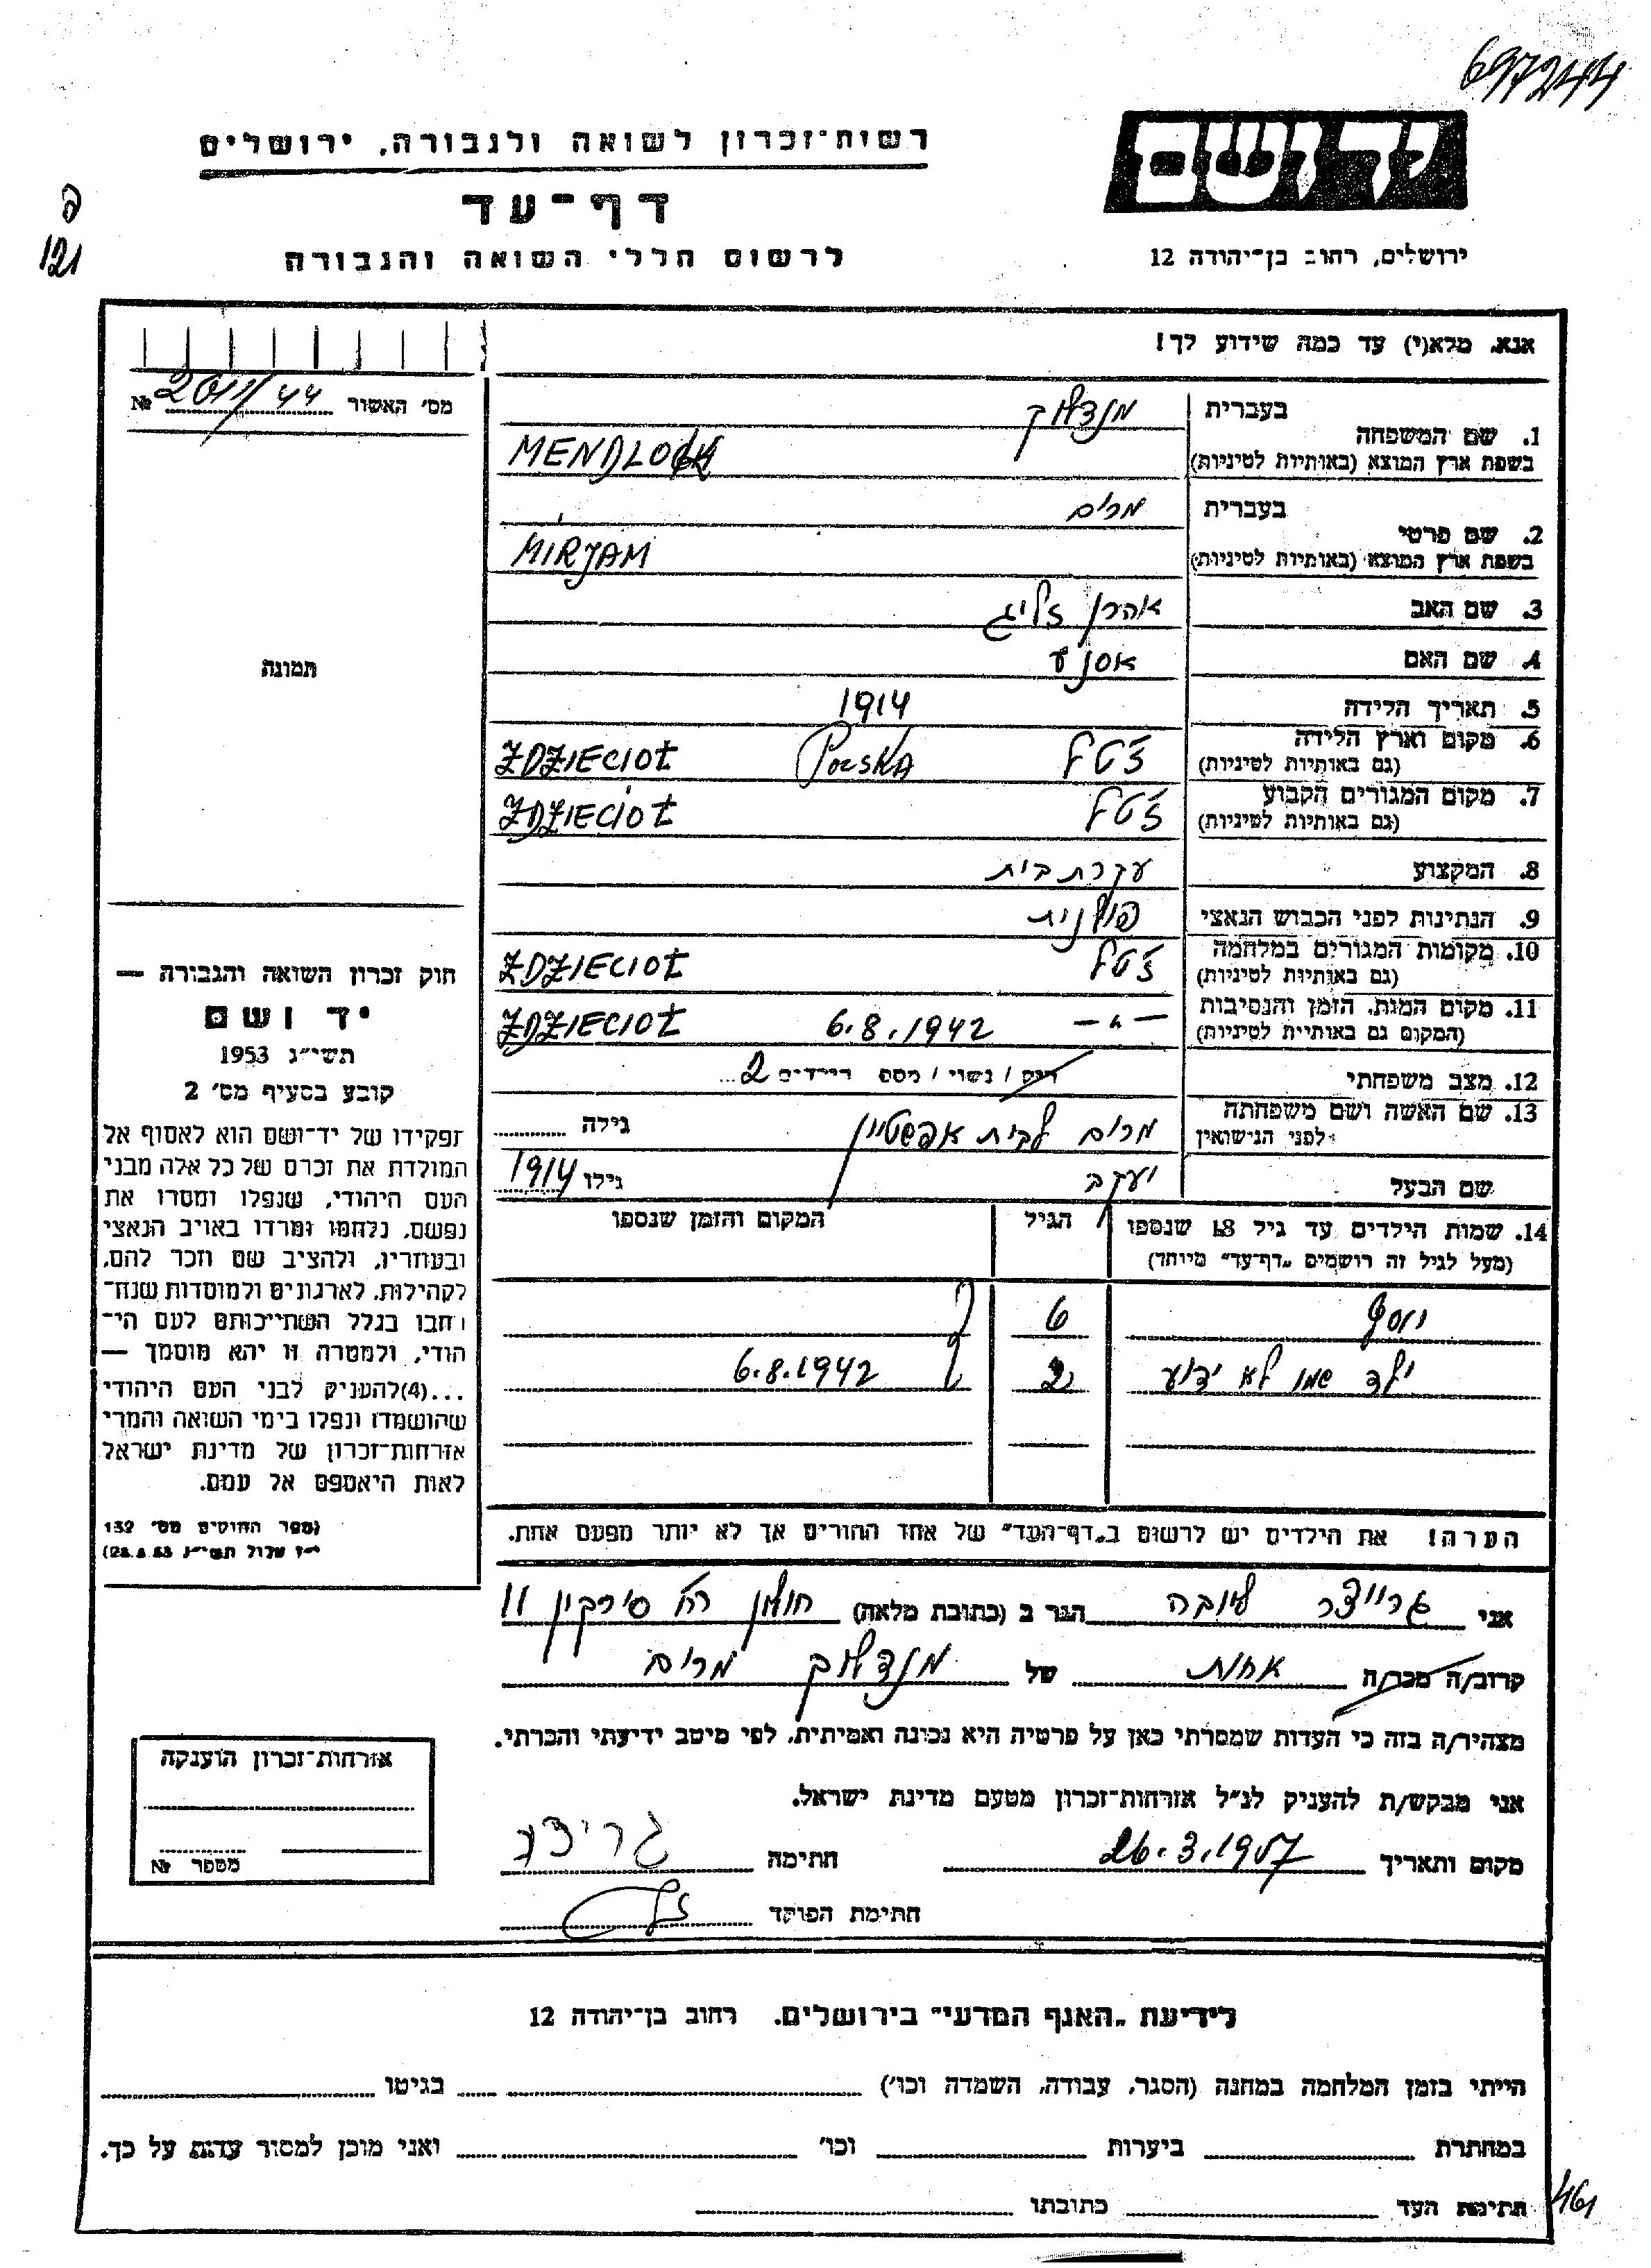 697244
יד ושם
רשות־זכרון לשואה ולגבורה, ירושלים
דף־עד
לרשום חללי השואה והגבורה
ירושלים, רחוב בן־יהודה 12
121
אנא, מלא(י) עד כמה שידוע לך!
מס׳ האשור 2011/44 №
בעברית מנדלוק
1. שם המשפחה
בשפת ארץ המוצא (באותיות לטיניות) MENDLOCK
בעברית מרים
2. שם פרטי
בשפת ארץ המוצא (באותיות לטיניות) MIRJAM
3. שם האב אהרן זליג
4. שם האם
5. תאריך הלידה 1914
6. מקום וארץ הלידה
(גם באותיות לטיניות) ז׳טל POLSKA ZDZIECIOŁ
7. מקום המגורים הקבוע
(גם באותיות לטיניות) ז׳טל ZDZIECIOŁ
8. המקצוע עקרת בית
9. הנתינות לפני הכבוש הנאצי פולנית
10. מקומות המגורים במלחמה
(גם באותיות לטיניות) ז׳טל ZDZIECIOŁ
11. מקום המות, הזמן והנסיבות
(המקום גם באותיות לטיניות) —״— 6.8.1942 ZDZIECIOŁ
12. מצב משפחתי רוק / נשוי / מספר הילדים 2
13. שם האשה ושם משפחתה
לפני הנישואין מרים לבית אפשטיין גילה
שם הבעל יעקב גילו 1914
14. שמות הילדים עד גיל 18 שנספו הגיל המקום והזמן שנספו
(מעל לגיל זה רושמים „דף־עד״ מיוחד)
יוסף 6
ילד שמו לא ידוע 2 6.8.1942
הערה! את הילדים יש לרשום ב„דף־העד״ של אחד ההורים אך לא יותר מפעם אחת.
תמונה
חוק זכרון השואה והגבורה —
יד ושם
תשי״ג 1953
קובע בסעיף מס׳ 2
תפקידו של יד־ושם הוא לאסוף אל
המולדת את זכרם של כל אלה מבני
העם היהודי, שנפלו ומסרו את
נפשם, נלחמו ומרדו באויב הנאצי
ובעוזריו, ולהציב שם וזכר להם,
לקהילות, לארגונים ולמוסדות שנח־
רבו בגלל השתייכותם לעם הי־
הודי, ולמטרה זו יהא מוסמך —
...(4)להעניק לבני העם היהודי
שהושמדו ונפלו בימי השואה והמרי
אזרחות־זכרון של מדינת ישראל
לאות היאספם אל עמם.
(ספר החוקים מס׳ 132
י״ז אלול תשי״ג 28.8.53)
אני גרייצר ליובה הגר ב (כתובת מלאה) חולון רח׳ סירקין 11
קרוב/ה מכר/ה אחות של מנדלוק מרים
מצהיר/ה בזה כי העדות שמסרתי כאן על פרטיה היא נכונה ואמיתית, לפי מיטב ידיעתי והכרתי.
אני מבקש/ת להעניק לנ״ל אזרחות־זכרון מטעם מדינת ישראל.
מקום ותאריך 26.3.1957 חתימה
חתימת הפוקד
אזרחות־זכרון הוענקה
מספר №
לידיעת „האגף המדעי״ בירושלים, רחוב בן־יהודה 12
הייתי בזמן המלחמה במחנה (הסגר, עבודה, השמדה וכו׳) בגיטו
במחתרת ביערות וכו׳ ואני מוכן למסור עדות על כך.
חתימת העד כתובתו
461